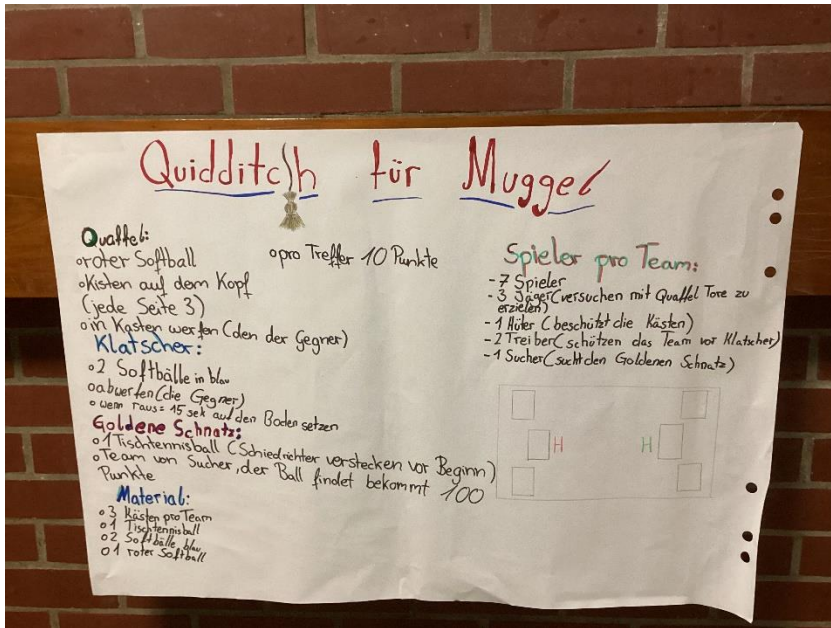 Quidditch für Muggel
Quaffel:
o roter Softball
o pro Treffer 10 Punkte
o Kisten auf dem Kopf
(jede Seite 3)
o in Kasten werfen (den der Gegner)
Klatscher:
o 2 Softbälle in blau
o abwerfen (die Gegner)
o wenn raus = 15 sek auf den Boden setzen
Goldene Schnatz:
o 1 Tischtennisball (Schiedrichter verstecken vor Beginn)
o Team von Sucher, der Ball findet bekommt 100
Punkte
Material:
o 3 Kästen pro Team
o 1 Tischtennisball
o 2 Softbälle blau
o 1 roter Softball
Spieler pro Team:
- 7 Spieler
- 3 Jäger (versuchen mit Quaffel Tore zu
erzielen)
- 1 Hüter (beschützt die Kästen)
- 2 Treiber (schützen das Team vor Klatscher)
- 1 Sucher (sucht den Goldenen Schnatz)
H H